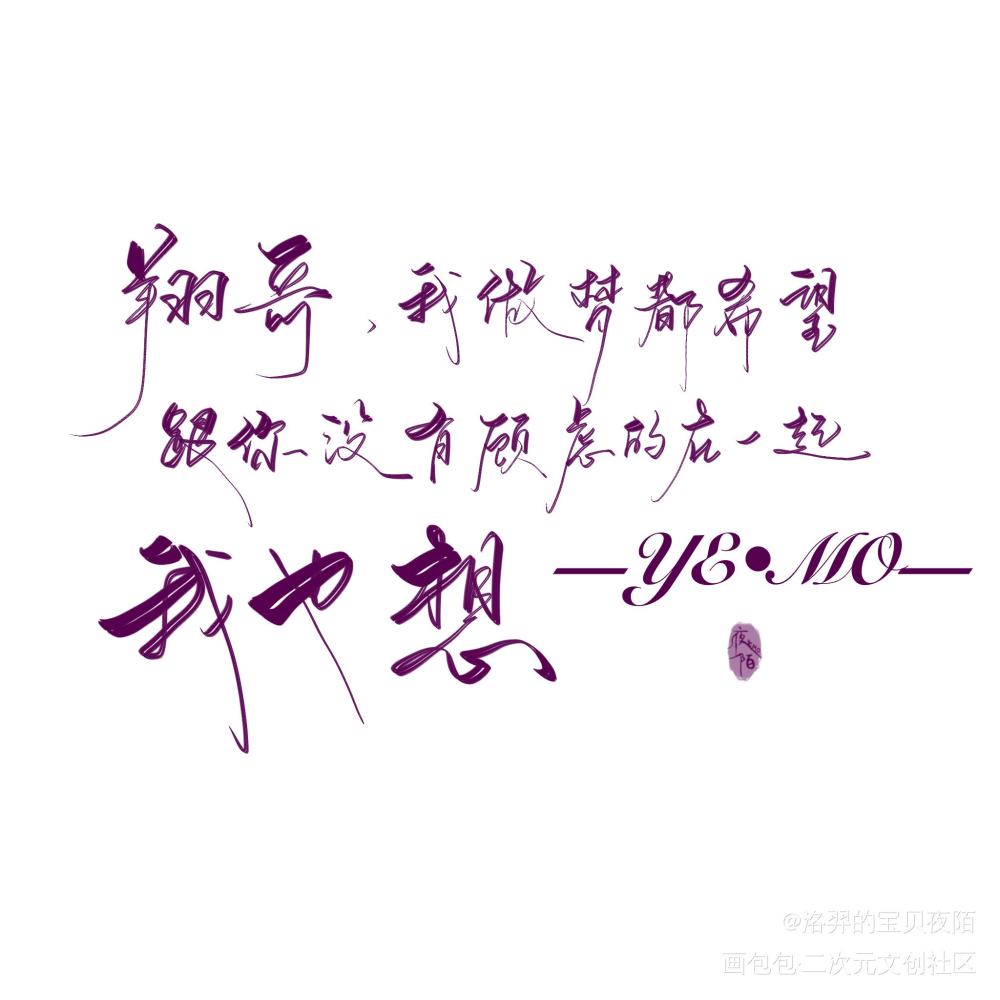 翔哥，我做梦都希望
跟你没有顾虑的在一起
我也想
—YE•MO—
夜陌
@洛羿的宝贝夜陌
画包包·二次元文创社区